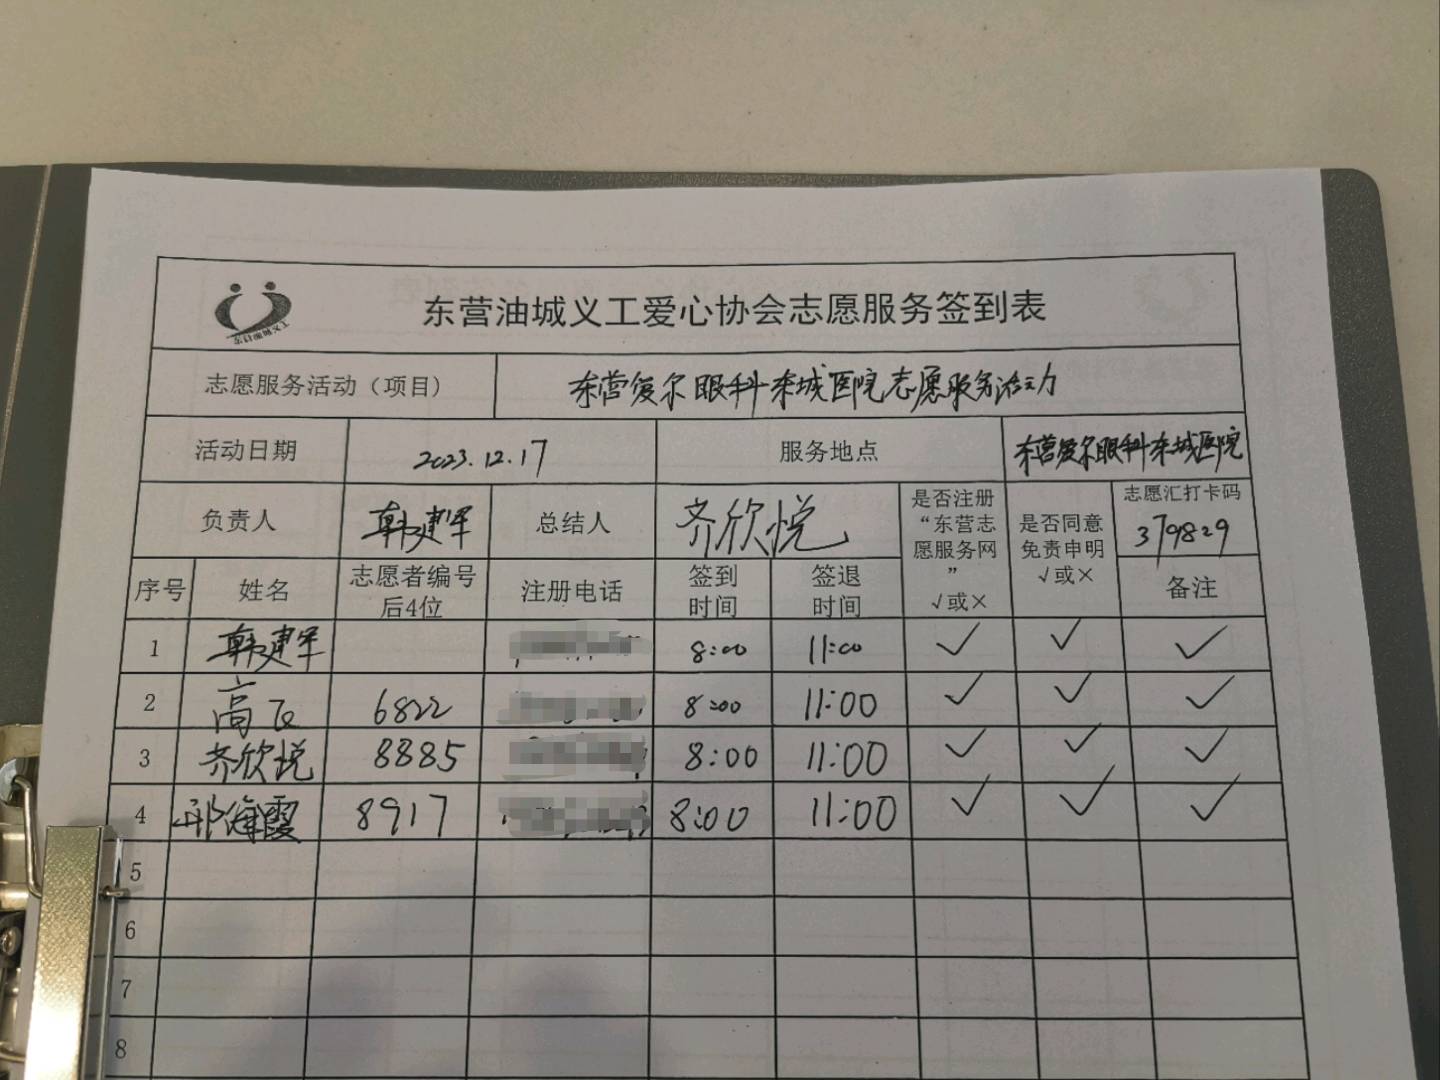 东营油城义工爱心协会志愿服务签到表
志愿服务活动（项目） 东营爱尔眼科东城医院志愿服务活动
活动日期 2023.12.17 服务地点 东营爱尔眼科东城医院
负责人 韩建军 总结人 齐欣悦 是否注册“东营志愿服务网” √或× 是否同意免责申明 √或× 志愿汇打卡码 379829
序号 姓名 志愿者编号后4位 注册电话 签到时间 签退时间 备注
1 韩建军 8:00 11:00 ✓ ✓ ✓
2 高飞 6822 8:00 11:00 ✓ ✓ ✓
3 齐欣悦 8885 8:00 11:00 ✓ ✓ ✓
4 邢海霞 8917 8:00 11:00 ✓ ✓ ✓
5
6
7
8